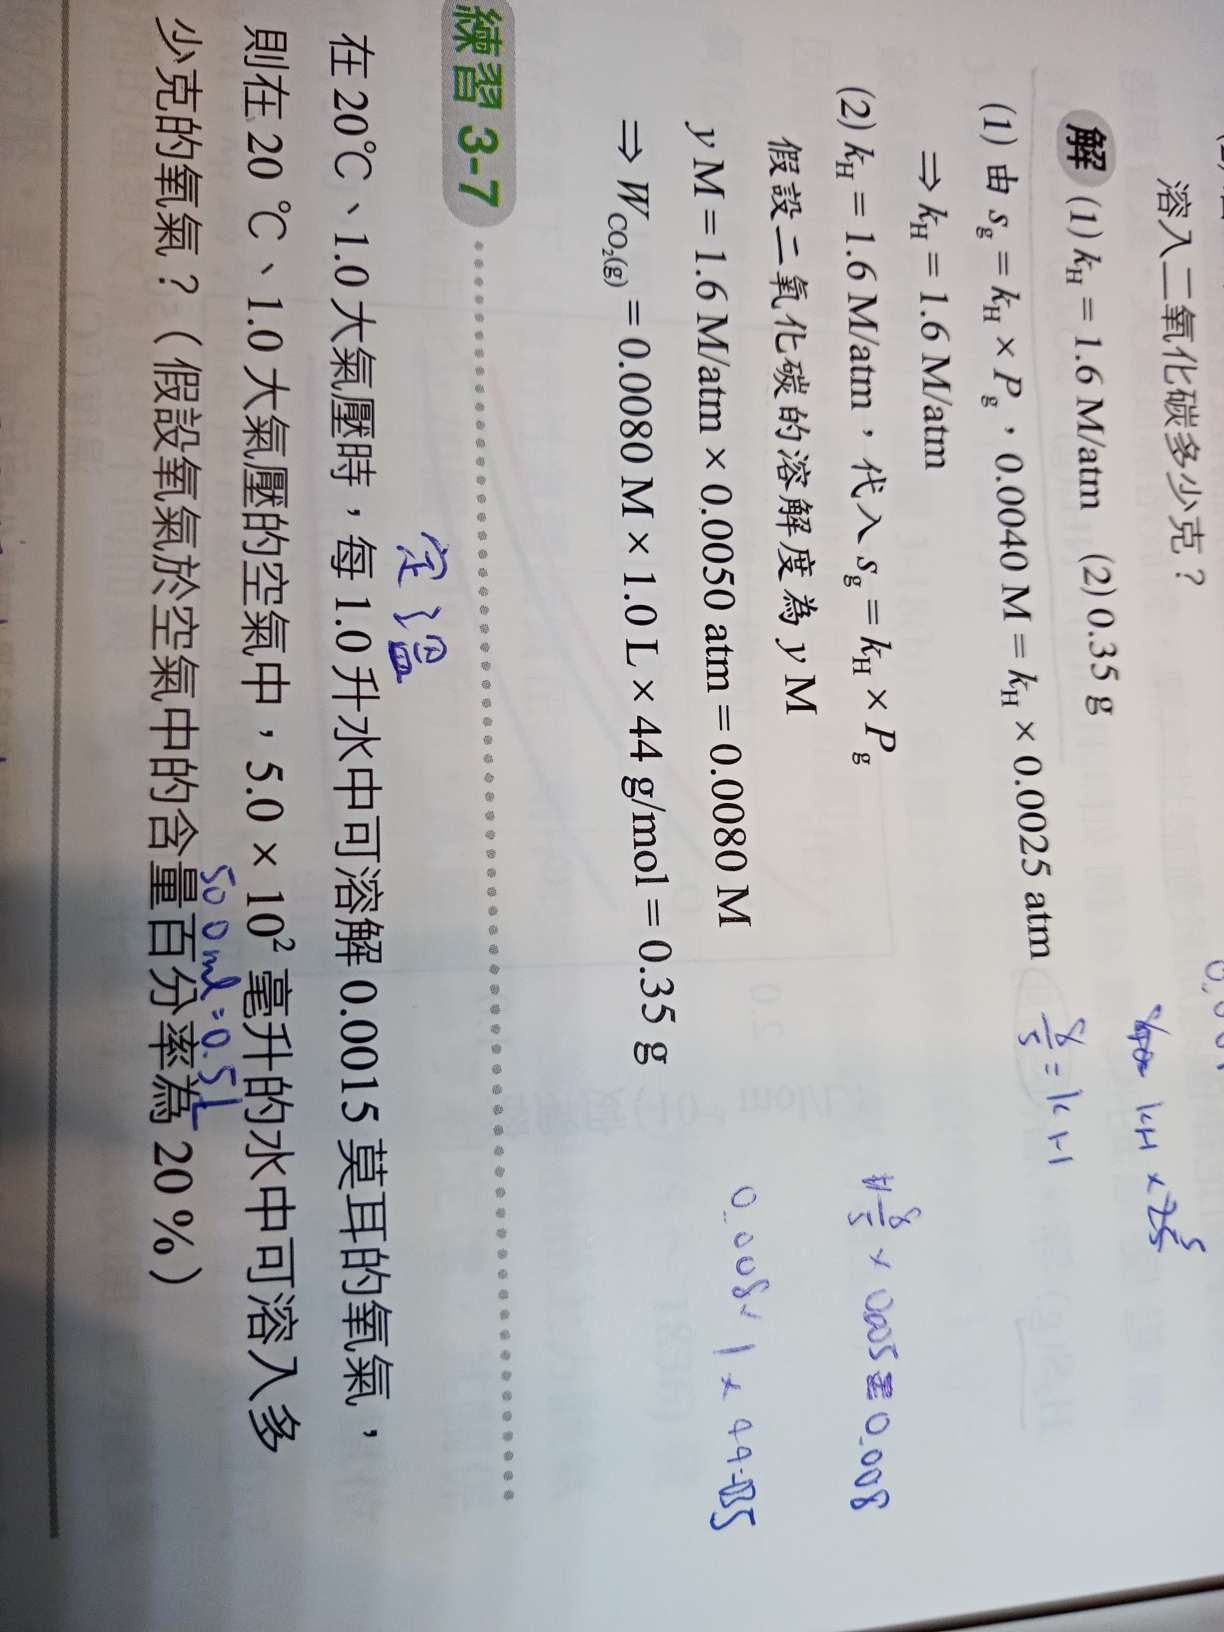 溶入二氧化碳多少克？
解 (1) kH = 1.6 M/atm (2) 0.35 g
(1) 由 Sg = kH × Pg，0.0040 M = kH × 0.0025 atm
⇒ kH = 1.6 M/atm
8/5 = kH
kH × 25
(2) kH = 1.6 M/atm，代入 Sg = kH × Pg
假設二氧化碳的溶解度為 y M
8/5 × 0.005 = 0.008
y M = 1.6 M/atm × 0.0050 atm = 0.0080 M
⇒ WCO2(g) = 0.0080 M × 1.0 L × 44 g/mol = 0.35 g
練習 3-7
定溫
在 20℃、1.0 大氣壓時，每 1.0 升水中可溶解 0.0015 莫耳的氧氣，
則在 20 ℃、1.0 大氣壓的空氣中，5.0 × 10² 毫升的水中可溶入多
500ml = 0.5L
少克的氧氣？（假設氧氣於空氣中的含量百分率為 20 %）